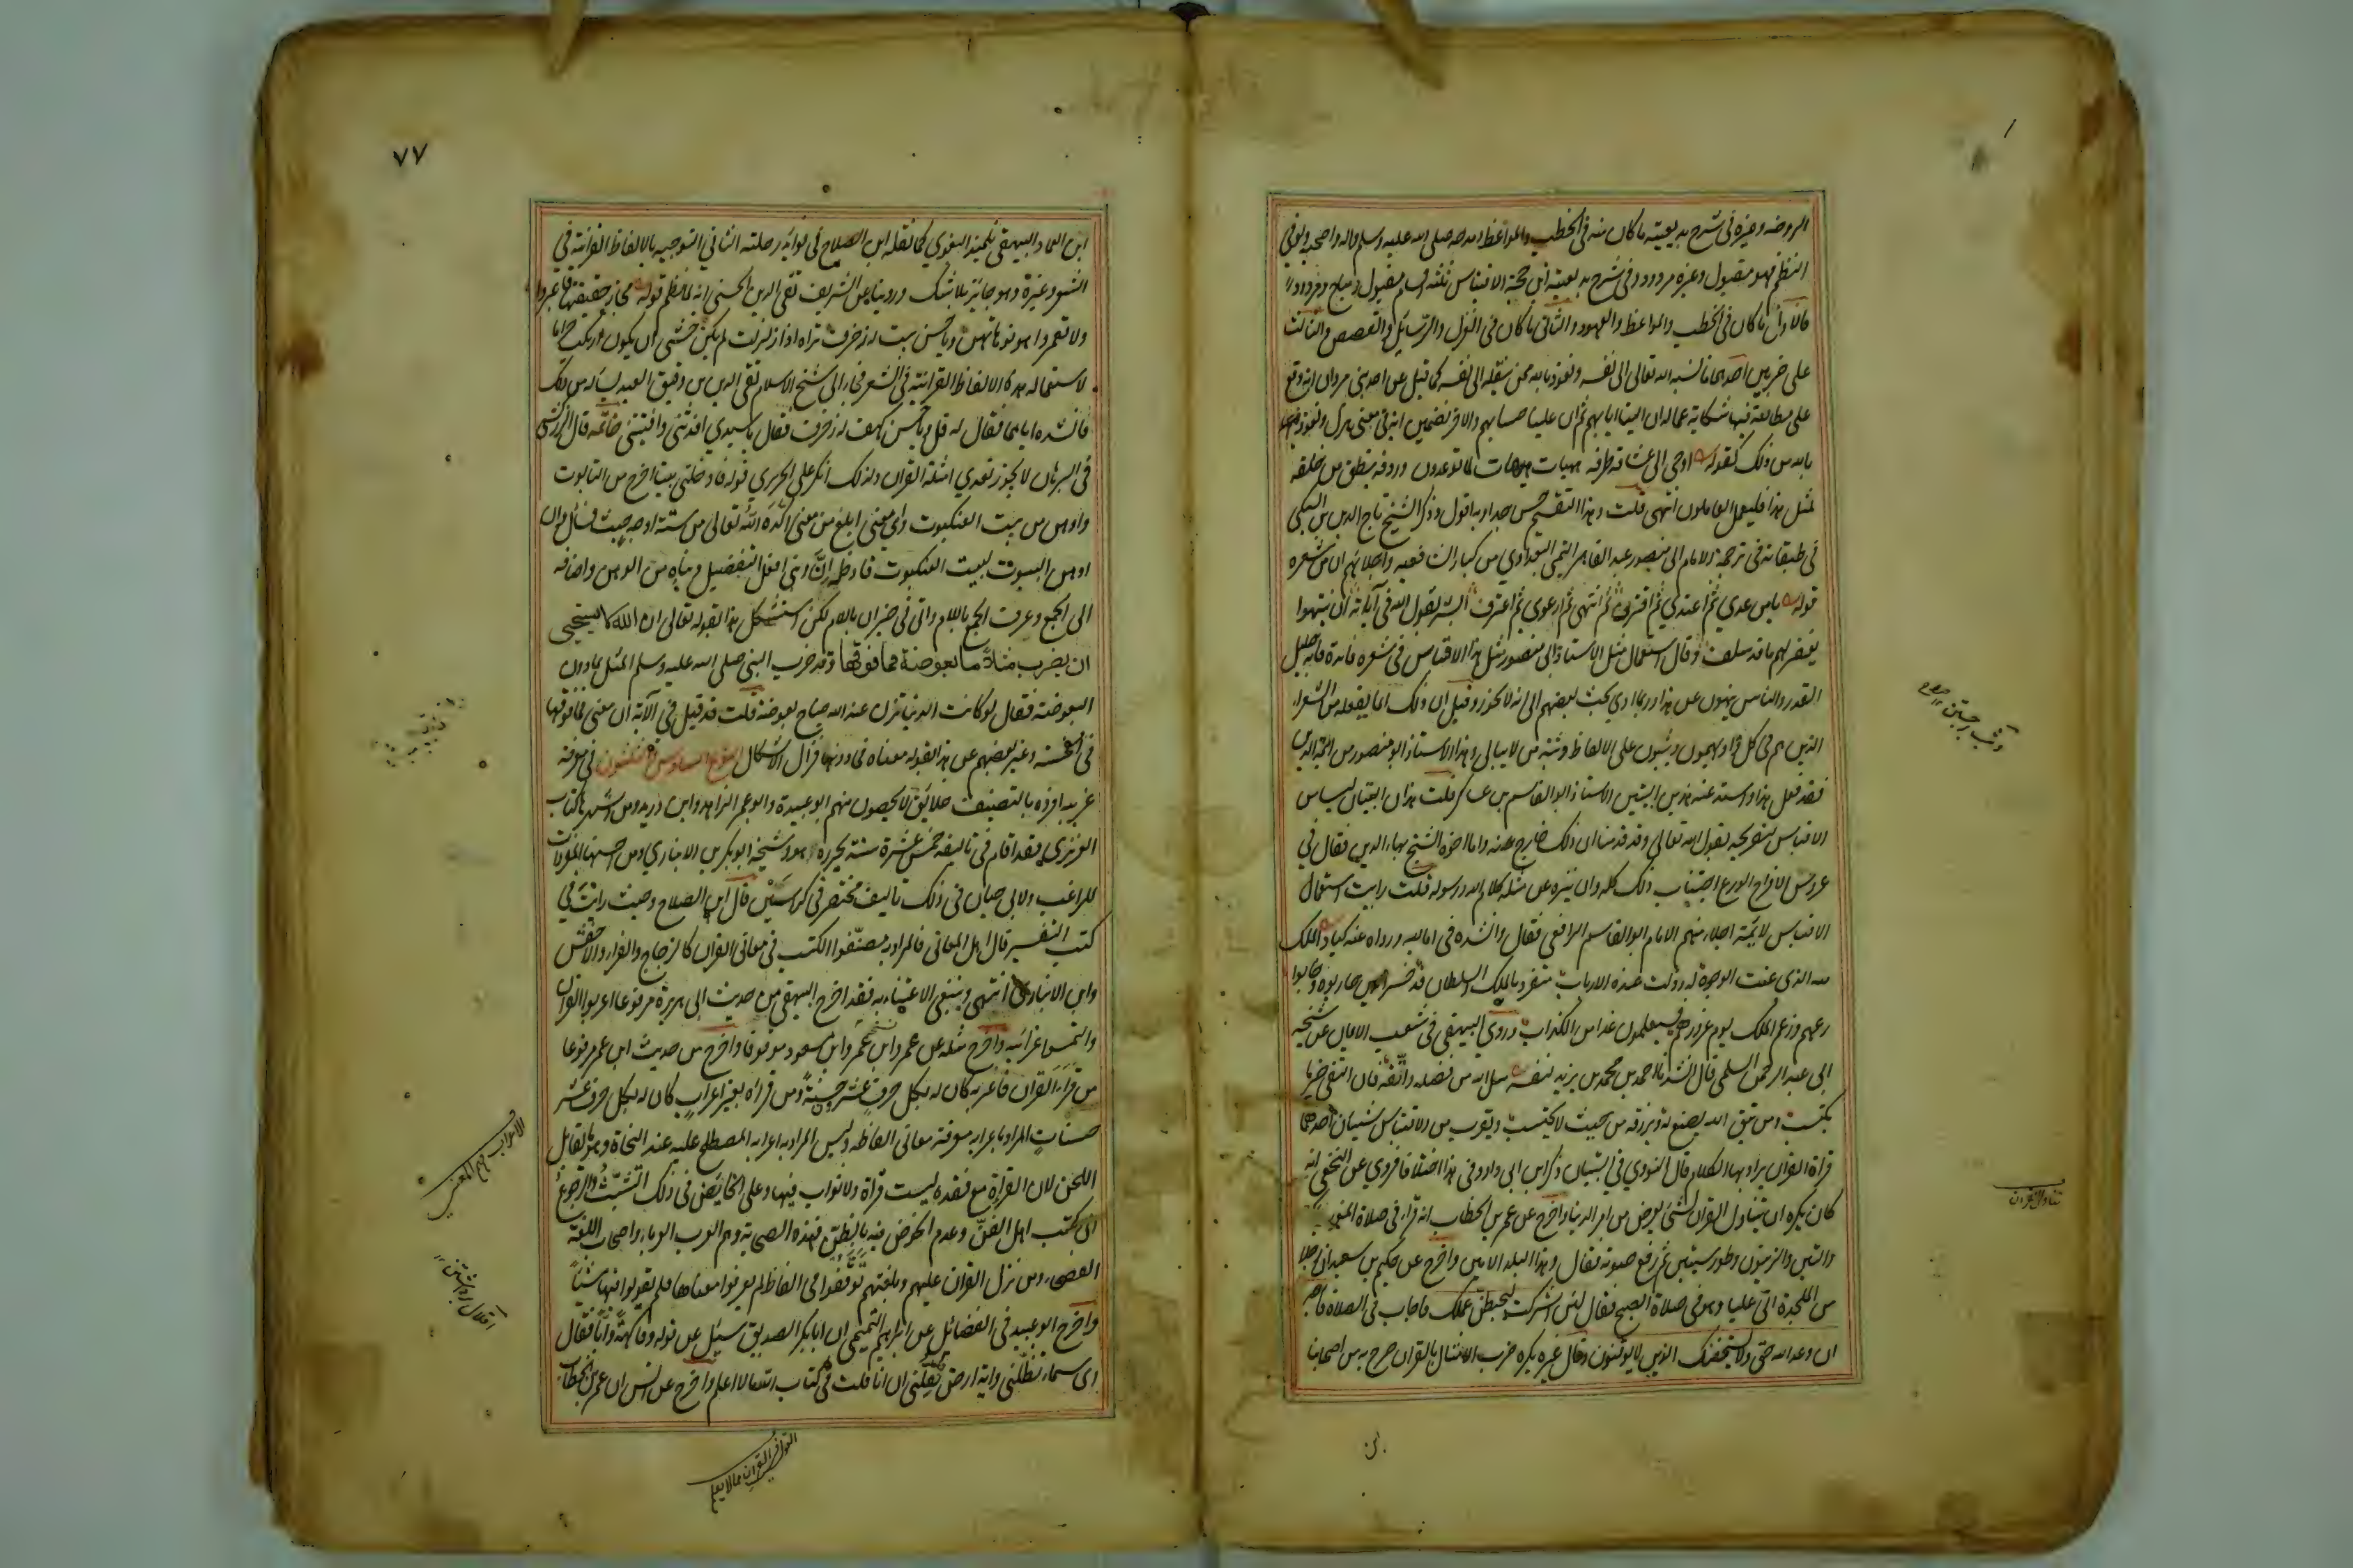 الروضه وغيره في شرح بديعيته ما كان منه في الخطب والمواعظ ومدحه صلى الله عليه وسلم واله وصحبه ولو في
النظم فهو مقبول وغيره مردود وفي شرح بديعية ابن حجة الاقتباس ثلثة اقسام مقبول ومباح ومردود
فالاول ما كان في الخطب والمواعظ والعهود والثاني ما كان في الغزل والرسائل والقصص والثالث
على ضربين احدهما ما نسبه الله تعالى الى نفسه ونعوذ بالله ممن ينقله الى نفسه كما قيل عن احد بني مروان انه وقع
على مطالعة فيها شكاية عماله ان الينا ايابهم ثم ان علينا حسابهم والاخر تضمين اية في معنى هزل ونعوذ
بالله من ذلك كقوله اوحى الى عشاقه طرفه هيهات هيهات لما توعدون وردفه ينطق من خلفه
لمثل هذا فليعمل العاملون انتهى قلت وهذا التقسيم حسن جدا وبه اقول وذكر الشيخ تاج الدين بن السبكي
في طبقاته في ترجمة الامام ابي منصور عبد القاهر التميمي البغدادي من كبار الشافعية واجلائهم ان من شعره
قوله يا من عدى ثم اعتدى ثم اقترف ثم انتهى ثم ارعوى ثم اعترف ابشر بقول الله في آياته ان ينتهوا
يغفر لهم ما قد سلف وقال استعمال مثل الاستاذ ابي منصور مثل هذا الاقتباس في شعره فائدة فانه جليل
القدر والناس ينهون عن هذا وربما ادى بحث بعضهم الى انه لا يجوز وقيل ان ذلك انما يفعله من الشعراء
الذين هم في كل واد يهيمون ويثبون على الالفاظ وثبة من لا يبالي وهذا الاستاذ ابو منصور من ائمة الدين
فقد فعل هذا واسند عنه هذين البيتين الاستاذ ابو القاسم بن عساكر قلت هذان البيتان ليسا من
الاقتباس لتصريحه بقول الله تعالى وقد قدمنا ان ذلك خارج عنه واما اخوه الشيخ بهاء الدين فقال في
عروس الافراح الورع اجتناب ذلك كله وان ينزه عن مثله كلام الله ورسوله قلت رايت استعمال
الاقتباس لائمة اجلاء منهم الامام ابو القاسم الرافعي فقال وانشده في اماليه ورواه عنه ائمة كبار الملك
لله الذي عنت الوجوه له وذلت عنده الارباب متفرد بالملك والسلطان قد خسر الذين حاربوه وخابوا
دعهم وزعم الملك يوم غرورهم فسيعلمون غدا من الكذاب وروى البيهقي في شعب الايمان عن شيخه
ابي عبد الرحمن السلمي قال انشدنا احمد بن محمد بن يزيد لنفسه سل الله من فضله واتقه فان التقى خير ما
يكتسب ومن يتق الله يصنع له ويرزقه من حيث لا يحتسب ويقرب من الاقتباس شيئان احدهما
قراءة القرآن يراد بها الكلام قال النووي في التبيان ذكر ابن ابي داود في هذا اختلافا فروي عن النخعي انه
كان يكره ان يتناول القرآن لشيء يعرض من امر الدنيا واخرج عن عمر بن الخطاب انه قرا في صلاة المغرب
والتين والزيتون وطور سينين ثم رفع صوته فقال وهذا البلد الامين واخرج عن حكيم بن سعيد ان رجلا
من المحكمة اتى عليا وهو في صلاة الصبح فقال لئن اشركت ليحبطن عملك فاجاب في الصلاة فاصبر
ان وعد الله حق ولا يستخفنك الذين لا يوقنون وقال غيره يكره ضرب الامثال بالقرآن صرح به من اصحابنا
تناول القرآن
ابن
٧٧
ابن العماد البيهقي تلميذ البغوي كما نقله ابن الصلاح في فوائد رحلته الثاني التوجيه بالالفاظ القرآنية في
الشعر وغيره وهو جائز بلا شك وروينا عن الشريف تقي الدين الحسيني انه لما نظم قوله مجاز حقيقتها فاعبروا
ولا تعمروا هونوها تهن وما حسن بيت له زخرف تراه اذا زلزلت لم يكن خشي ان يكون ارتكب حراما
لاستعماله هذه الالفاظ القرآنية في الشعر فجاء الى شيخ الاسلام تقي الدين بن دقيق العيد يساله عن ذلك
فانشده اياهما فقال له قل وما حسن كهف له زخرف فقال يا سيدي افدتني وافتيتني خاتمة قال الزركشي
في البرهان لا يجوز تعدي امثلة القرآن ولذلك انكر على الحريري قوله فادخلني بيتا احرج من التابوت
واوهن من بيت العنكبوت واي معنى ابلغ من معنى اكده الله تعالى من ستة اوجه حيث قال وان
اوهن البيوت لبيت العنكبوت فادخل ان وبنى افعل التفضيل وبناه من الوهن واضافه
الى الجمع وعرف الجمع باللام واتى في خبر ان باللام لكن استشكل هذا بقوله تعالى ان الله لا يستحيي
ان يضرب مثلا ما بعوضة فما فوقها وقد ضرب النبي صلى الله عليه وسلم المثل بما دون
البعوضة فقال لو كانت الدنيا تزن عند الله جناح بعوضة قلت قد قيل في الآية ان معنى فما فوقها
في الخسة وعبر بعضهم عن هذا بقوله معناه فما دونها فزال الاشكال النوع السادس والثلثون في معرفة
غريبه افرده بالتصنيف خلائق لا يحصون منهم ابو عبيدة وابو عمر الزاهد وابن دريد ومن اشهرها كتاب
العزيزي فقد اقام في تاليفه خمس عشرة سنة يحرره هو وشيخه ابو بكر بن الانباري ومن احسنها المفردات
للراغب ولابي حيان في ذلك تاليف مختصر في كراسين قال ابن الصلاح وحيث رايت في
كتب التفسير قال اهل المعاني فالمراد به مصنفوا الكتب في معاني القرآن كالزجاج والفراء والاخفش
وابن الانباري انتهى وينبغي الاعتناء به فقد اخرج البيهقي من حديث ابي هريرة مرفوعا اعربوا القرآن
والتمسوا غرائبه واخرج مثله عن عمر وابن عمر وابن مسعود موقوفا واخرج من حديث ابن عمر مرفوعا
من قرا القرآن فاعربه كان له بكل حرف عشرون حسنة ومن قراه بغير اعراب كان له بكل حرف عشر
حسنات المراد باعرابه معرفة معاني الفاظه وليس المراد به الاعراب المصطلح عليه عند النحاة وهو ما يقابل
اللحن لان القراءة مع فقده ليست قراءة ولا ثواب فيها وعلى الخائض في ذلك التثبت والرجوع
الى كتب اهل الفن وعدم الخوض فيه بالظن فهذه الصحابة وهم العرب العرباء واصحاب اللغة
الفصحى ومن نزل القرآن عليهم وبلغتهم توقفوا في الفاظ لم يعرفوا معناها فلم يقولوا فيها شيئا
واخرج ابو عبيد في الفضائل عن ابراهيم التيمي ان ابا بكر الصديق سئل عن قوله وفاكهة وابا فقال
اي سماء تظلني واية ارض تقلني ان انا قلت في كتاب الله ما لا اعلم واخرج عن انس ان عمر بن الخطاب